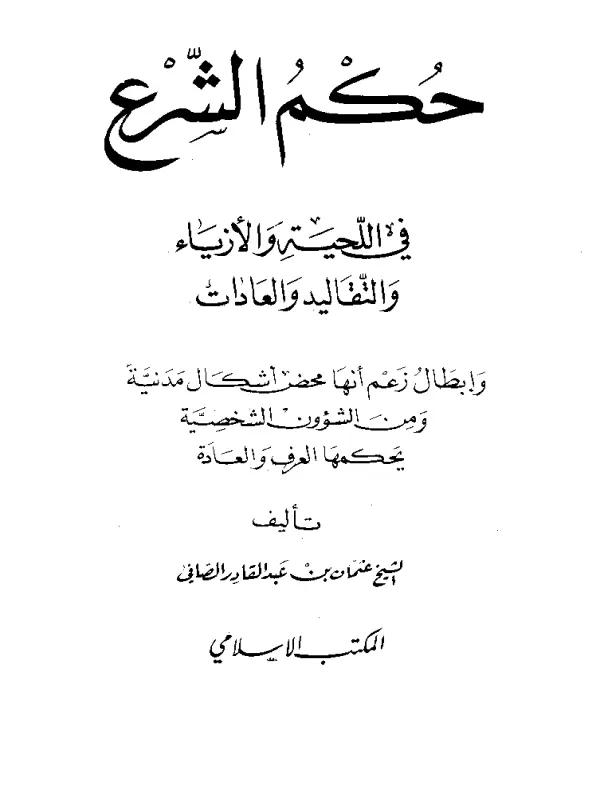 حُكْمُ الشَّرْعِ
في اللّحيَةِ وَالأزيَاء
وَالتّقَاليد وَالعَادَات
وَإبطَالُ زَعْم أنهَا محض أشكَال مَدَنيَّة
وَمِنَ الشؤونِ الشخصِيَّة
يَحكمهَا العرف وَالعَادَة
تأليف
الشيخ عثمان بن عَبد القادر الصَافي
المكتب الإسلامي